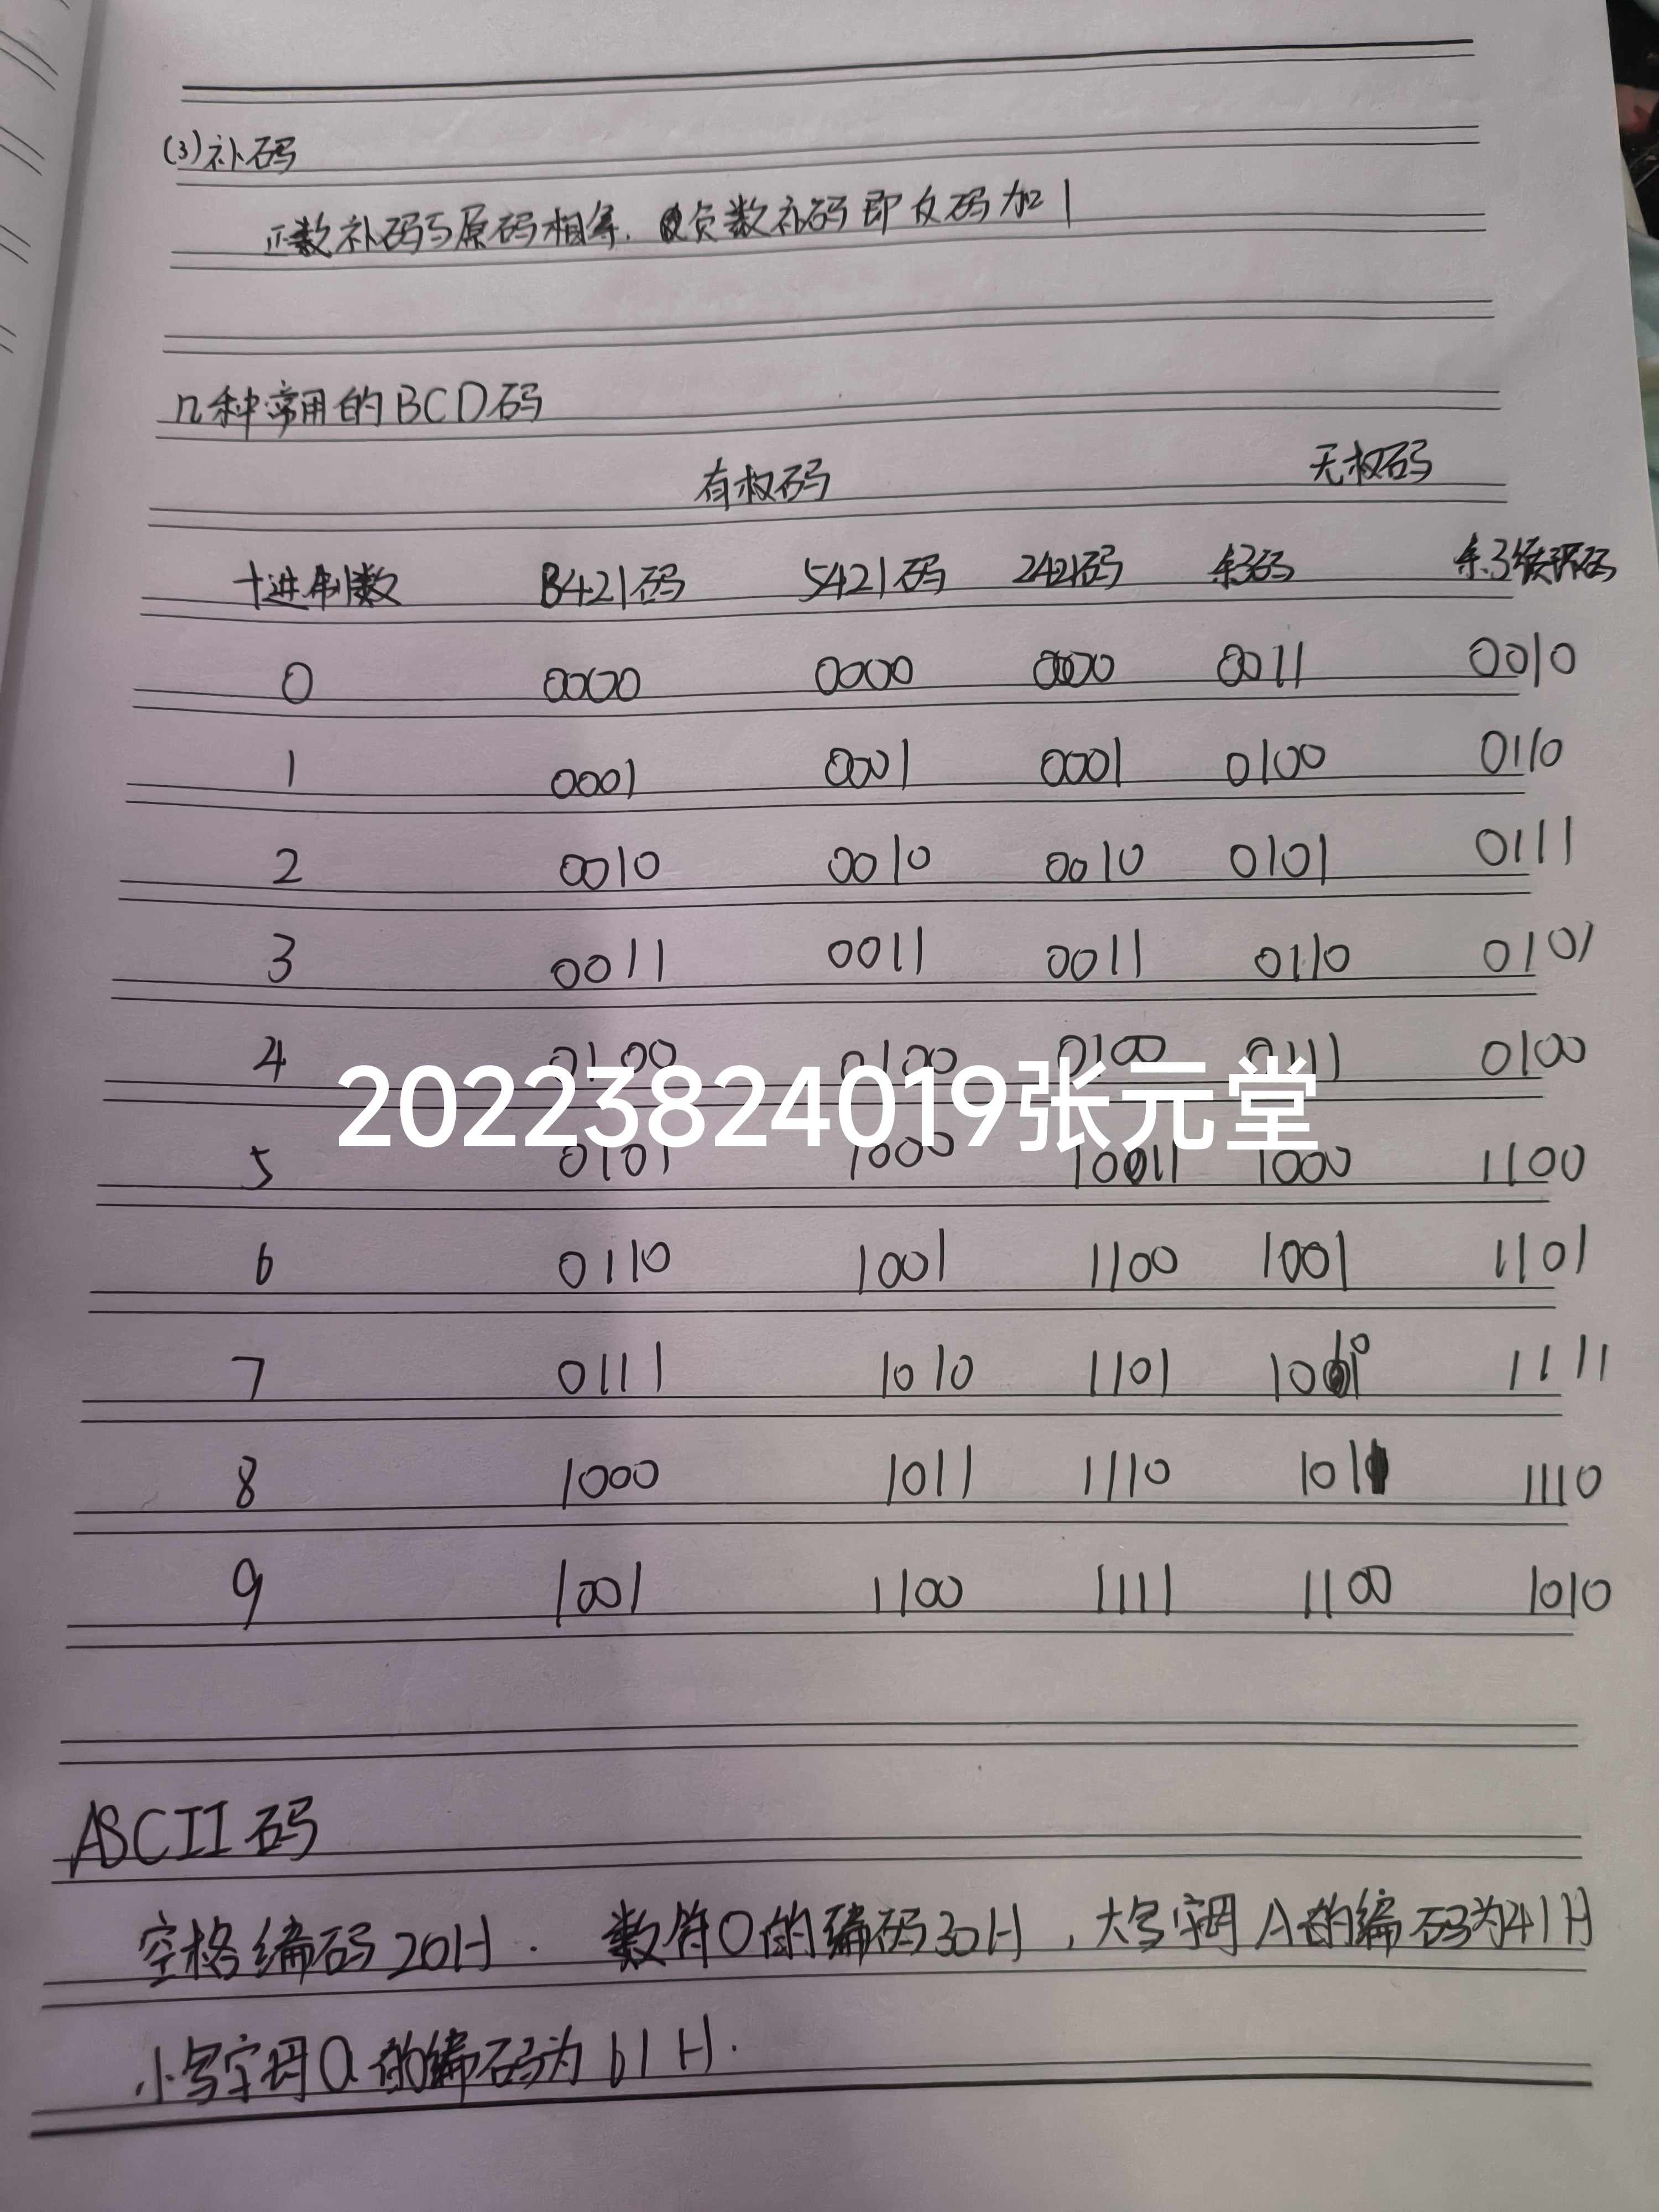 (3)补码
正数补码与原码相等.负数补码即反码加1
几种常用的BCD码
有权码 无权码
十进制数 8421码 5421码 2421码 余3码 余3循环码
0 0000 0000 0000 0011 0010
1 0001 0001 0001 0100 0110
2 0010 0010 0010 0101 0111
3 0011 0011 0011 0110 0101
4 0100 0100 0100 0111 0100
20223824019张元堂
5 0101 1000 1011 1000 1100
6 0110 1001 1100 1001 1101
7 0111 1010 1101 1010 1111
8 1000 1011 1110 1011 1110
9 1001 1100 1111 1100 1010
ASCII码
空格编码20H. 数符0的编码30H,大写字母A的编码为41H
小写字母a的编码为61H.